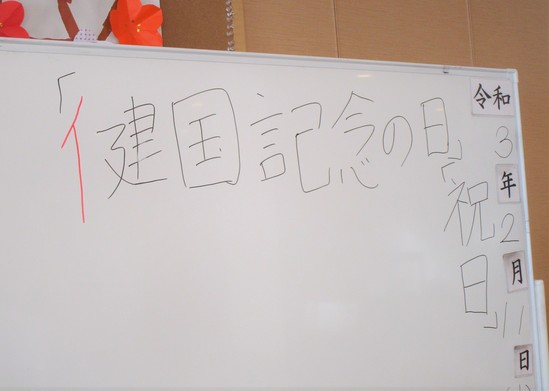 「健国記念の日」
「祝日」
令和3年2月11日